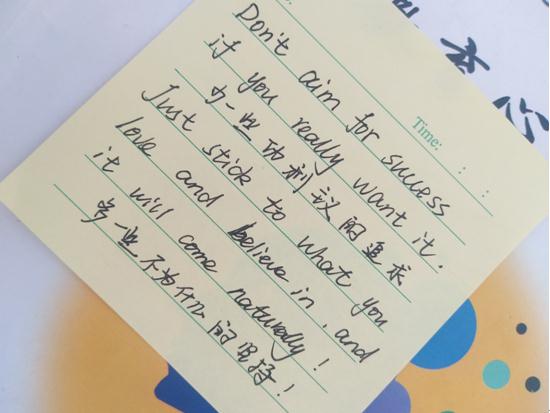 Time: : :
Don't aim for success
if you really want it.
少一些功利议的追求
Just stick to what you
love and believe in, and
it will come naturally!
多一些不为什么的坚持!